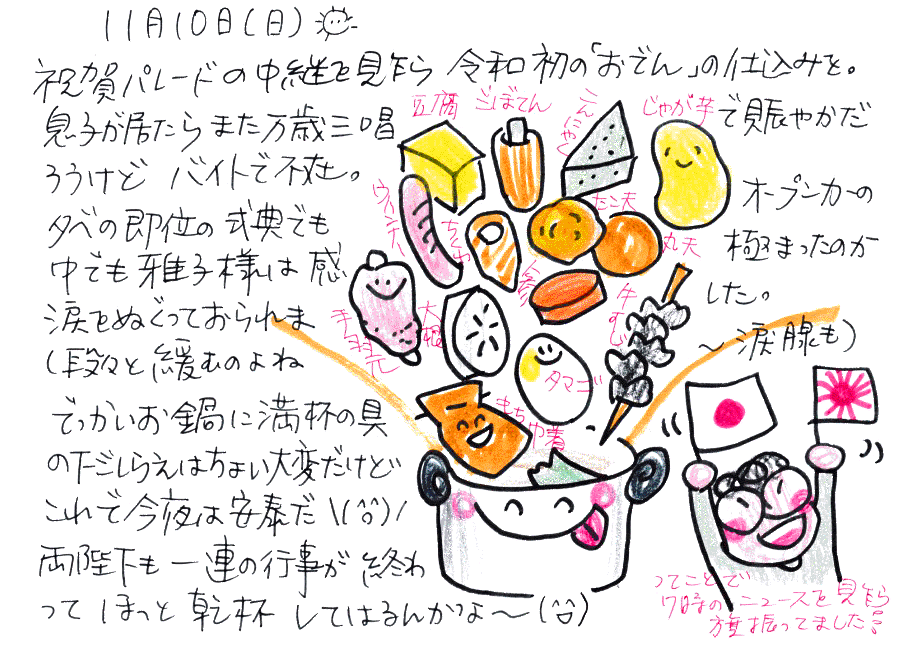 11月10日(日)
祝賀パレードの中継を見乍ら 令和初の「おでん」の仕込みを。
息子が居たらまた万歳三唱で賑やかだ
ろうけど バイトで不在。
オープンカーの
夕べの即位の式典でも
極まったのか
中でも雅子様は感
涙をぬぐっておられました。
(段々と緩むのよね
〜涙腺も)
でっかいお鍋に満杯の具
の下ごしらえはちょい大変だけど
これで今夜は安泰だ \(^o^)/
両陛下も一連の行事が終わ
ってほっと乾杯してはるんかなぁ〜(^^)
豆腐
ごぼてん
こんにゃく
じゃが芋
ウインナー
ちくわ
たこ天
丸天
手羽元
大根
牛すじ
タマゴ
もち巾着
ってことで
7時のニュースを見乍ら
旗振ってました!